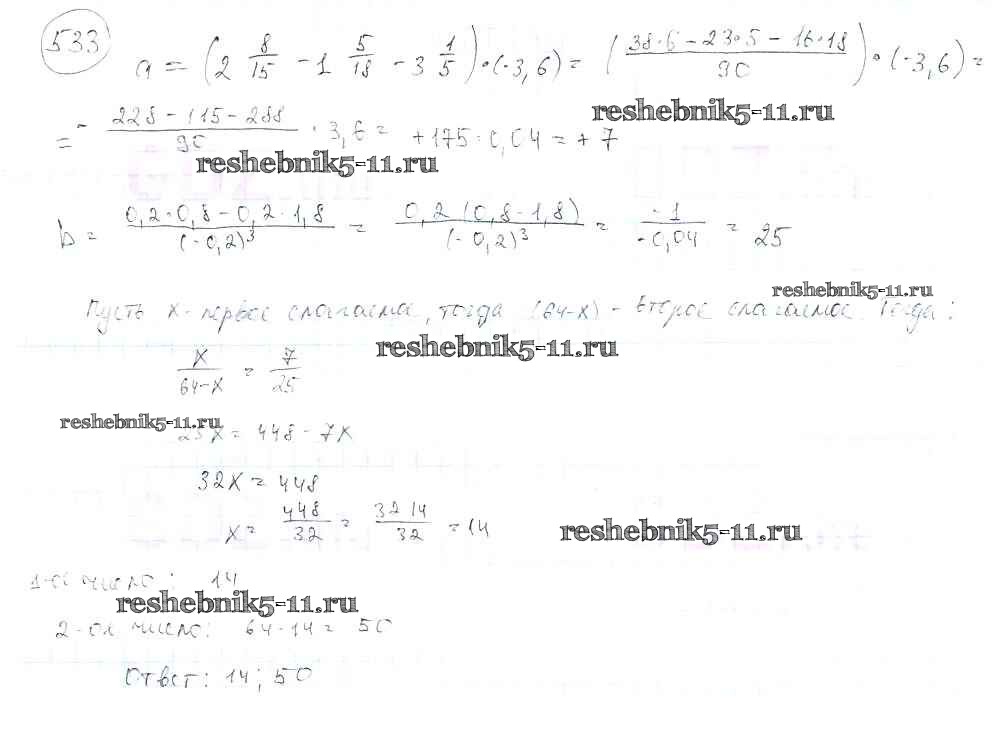 533
a = (2 8/15 - 1 5/18 - 3 1/5) · (-3,6) = ((38·6 - 23·5 - 16·18)/90) · (-3,6) =
reshebnik5-11.ru
= - (228 - 115 - 288)/90 · 3,6 = +175 · 0,04 = + 7
reshebnik5-11.ru
b = (0,2·0,8 - 0,2·1,8)/(-0,2)³ = (0,2(0,8-1,8))/(-0,2)³ = -1/-0,04 = 25
reshebnik5-11.ru
Пусть x - первое слагаемое, тогда (64-x) - второе слагаемое. Тогда:
reshebnik5-11.ru
x/(64-x) = 7/25
reshebnik5-11.ru
25x = 448 - 7x
32x = 448
x = 448/32 = 32 14/32 = 14
reshebnik5-11.ru
1-ое число: 14
reshebnik5-11.ru
2-ое число: 64-14 = 50
Ответ: 14; 50